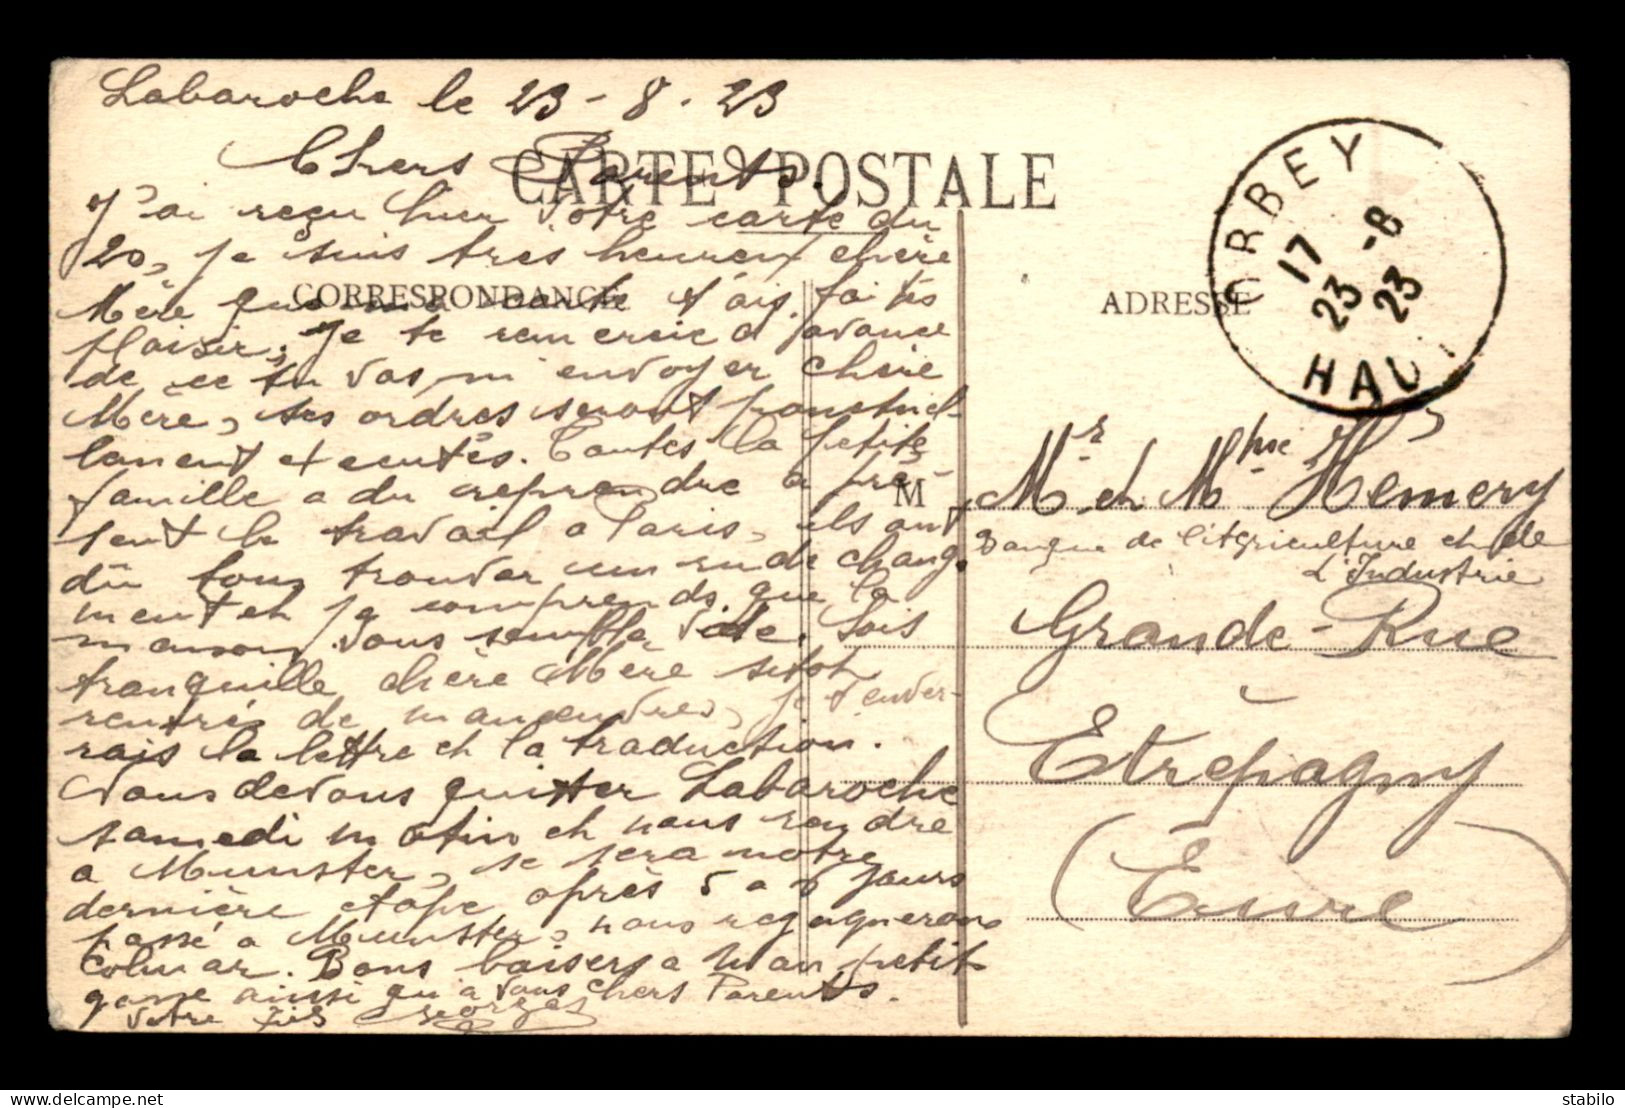 Labaroche le 23-8-23
Chers Parents.
CARTE POSTALE
J'ai reçu hier votre carte du
20, je suis très heureux chère
Mère que ma carte t'ais faites
CORRESPONDANCE
plaisir, je te remercie d'avance
de ce tu vas m'envoyer chère
Mère, tes ordres seront ponctuel-
lement exécutés. Toutes la petite
famille a du reprendre à pré-
sent le travail a Paris, ils ont
dû tous trouver un rude chang.
ment et je comprends que la
maison vous semble vide. Sois
tranquille chère Mère sitot
rentrés de manoeuvres, je t'enver-
rais la lettre et la traduction.
Nous devons quitter Labaroche
samedi matin et nous rendre
a Munster, se sera notre
dernière étape après 5 a 6 jours
passé a Munster, nous regagnerons
Colmar. Bons baisers a mon petit
gosse ainsi qu'a vous chers Parents.
Votre fils Georges
ORBEY
17
23 -8
23
HAUT
ADRESSE
M Mr et Mme Hemery
Banque de l'Agriculture et de
L'Industrie
Grande-Rue
Etrépagny
(Eure)
delcampe.net
stabilo